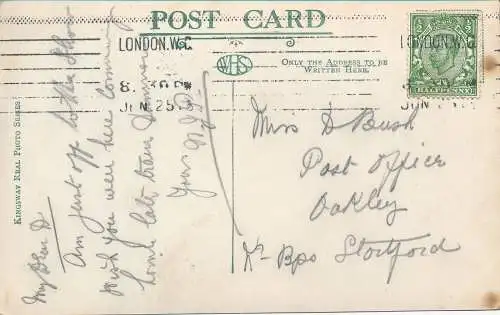 POST CARD
LONDON.W.C.
8. 30 PM
JUN 25
LONDON.W.C.
JUN
HALFPENNY
WHS
ONLY THE ADDRESS TO BE
WRITTEN HERE.
KINGSWAY REAL PHOTO SERIES
My Dear D.
Am just off to the Show
Wish you were here coming
home late train
Yours
Miss D Bush
Post Office
Oakley
Nr Bps Stortford